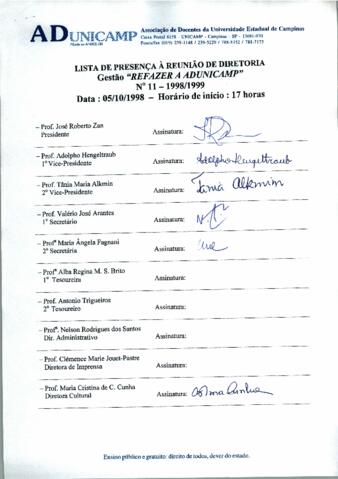 ADUNICAMP
Associação de Docentes da Universidade Estadual de Campinas
Caixa Postal 6158 - UNICAMP - Campinas - SP - 13081-970
LISTA DE PRESENÇA À REUNIÃO DE DIRETORIA
Gestão "REFAZER A ADUNICAMP"
Nº 11 – 1998/1999
Data : 05/10/1998 – Horário de início : 17 horas
– Prof. José Roberto Zan Assinatura:
Presidente
– Prof. Adolpho Hengeltraub Assinatura: Adolpho Hengeltraub
1º Vice-Presidente
– Profª Tânia Maria Alkmin Assinatura: Tania Alkmim
2º Vice-Presidente
– Prof. Valério José Arantes Assinatura:
1º Secretário
– Profª Maria Ângela Fagnani Assinatura:
2ª Secretária
– Profª Alba Regina M. S. Brito Assinatura:
1º Tesoureira
– Prof. Antonio Trigueiros Assinatura:
2º Tesoureiro
– Profº. Nelson Rodrigues dos Santos Assinatura:
Dir. Administrativo
– Prof. Clémence Marie Jouet-Pastre Assinatura:
Diretora de Imprensa
– Prof. Maria Cristina de C. Cunha Assinatura:
Diretora Cultural
Ensino público e gratuito: direito de todos, dever do estado.